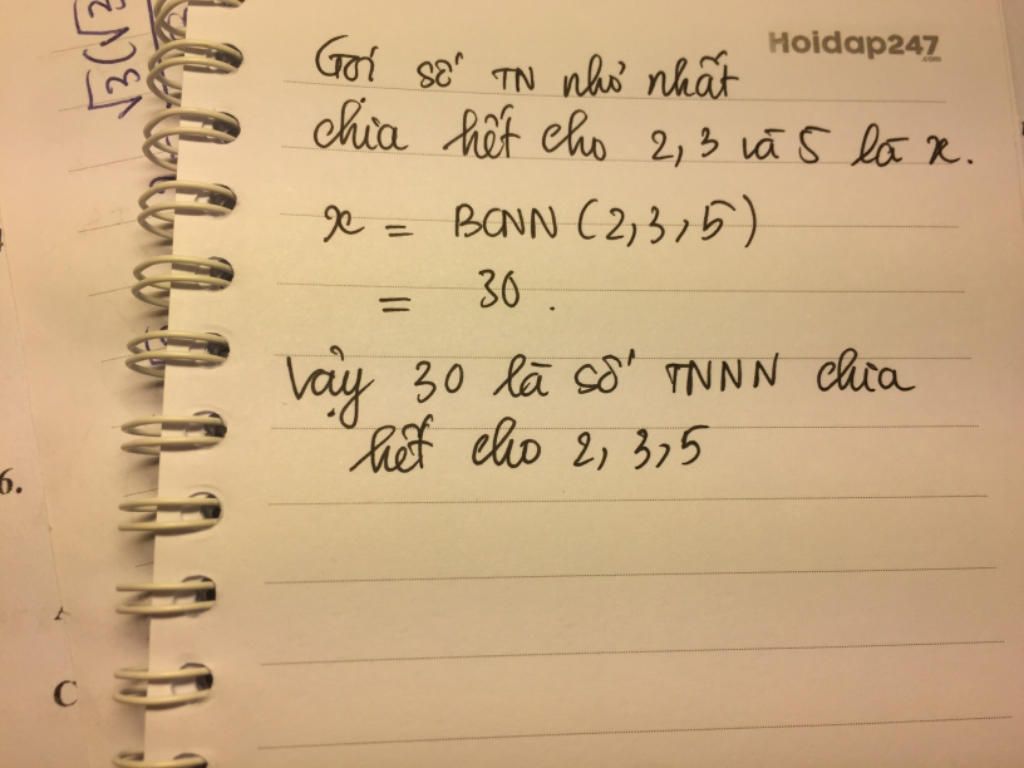 √3(√3
Hoidap247
.com
Gọi số TN nhỏ nhất
chia hết cho 2, 3 và 5 là x.
x = BCNN (2, 3, 5)
= 30.
Vậy 30 là số TNNN chia
hết cho 2, 3, 5
6.
C